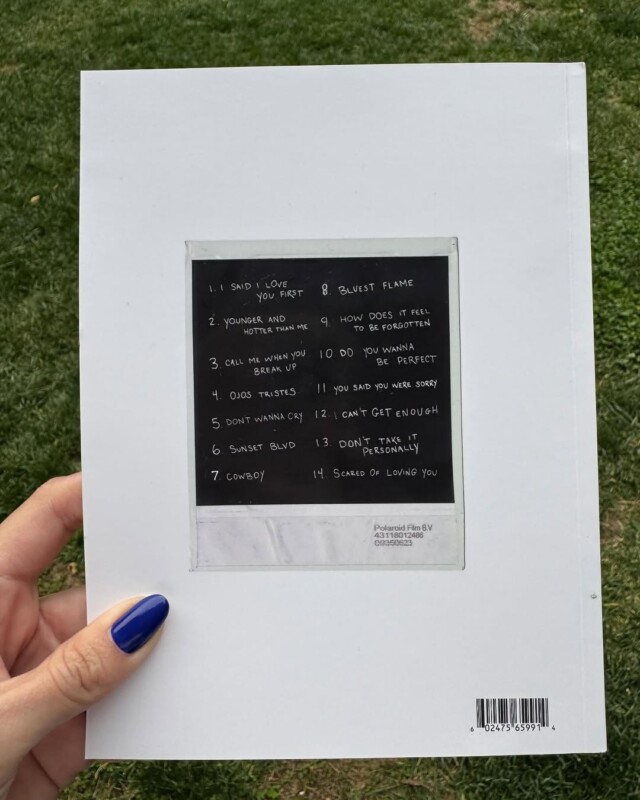 1. I SAID I LOVE
YOU FIRST
2. YOUNGER AND
HOTTER THAN ME
3. CALL ME WHEN YOU
BREAK UP
4. OJOS TRISTES
5. DON'T WANNA CRY
6. SUNSET BLVD
7. COWBOY
8. BLUEST FLAME
9. HOW DOES IT FEEL
TO BE FORGOTTEN
10 DO YOU WANNA
BE PERFECT
11 YOU SAID YOU WERE SORRY
12. I CAN'T GET ENOUGH
13 DON'T TAKE IT
PERSONALLY
14. SCARED OF LOVING YOU
Polaroid Film B.V
43118012486
6 02475 65991 4